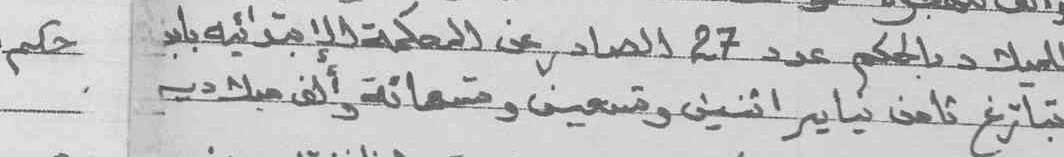 للميلاد وبالحكم عدد 27 الصادر عن المحكمة الإبتدائية بابن
حكم
بتاريخ ثامن يناير اثنين وتسعين وتسعمائة وألف ميلادية